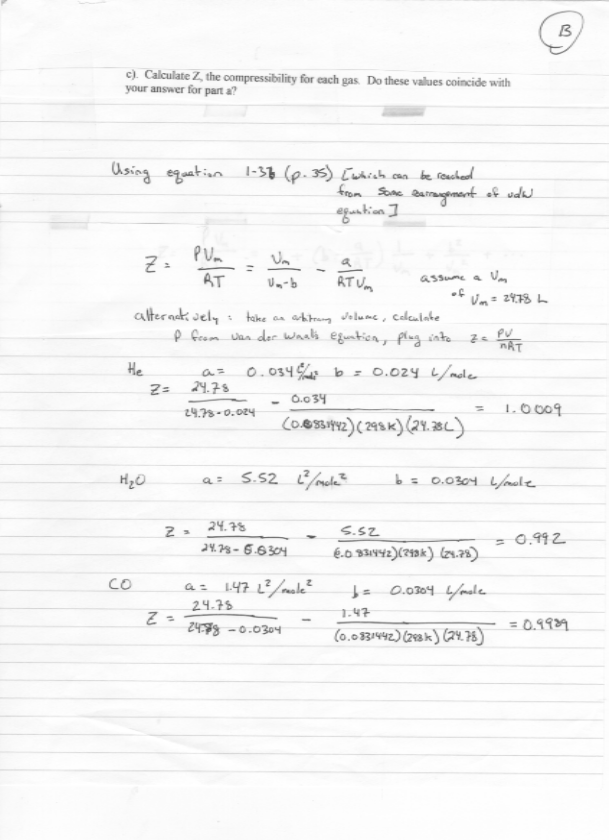 B
c). Calculate Z, the compressibility for each gas. Do these values coincide with
your answer for part a?
Using equation 1-36 (p. 35) [which can be reached
from some rearrangement of vdW
equation]
Z = PVm/RT = Vm/(Vm-b) - a/(RTVm)
assume a Vm
of Vm = 24.78 L
alternatively : take an arbitrary volume, calculate
P from van der Waals equation, plug into Z = PV/nRT
He a = 0.034 L²/mole² b = 0.024 L/mole
Z = 24.78/(24.78-0.024) - 0.034/((0.0831442)(298K)(24.78L)) = 1.0009
H₂O a = 5.52 L²/mole² b = 0.0304 L/mole
Z = 24.78/(24.78-0.0304) - 5.52/((0.0831442)(298K)(24.78)) = 0.992
CO a = 1.47 L²/mole² b = 0.0304 L/mole
Z = 24.78/(24.78-0.0304) - 1.47/((0.0831442)(298K)(24.78)) = 0.9989